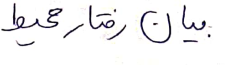 بیان رفتار محیط